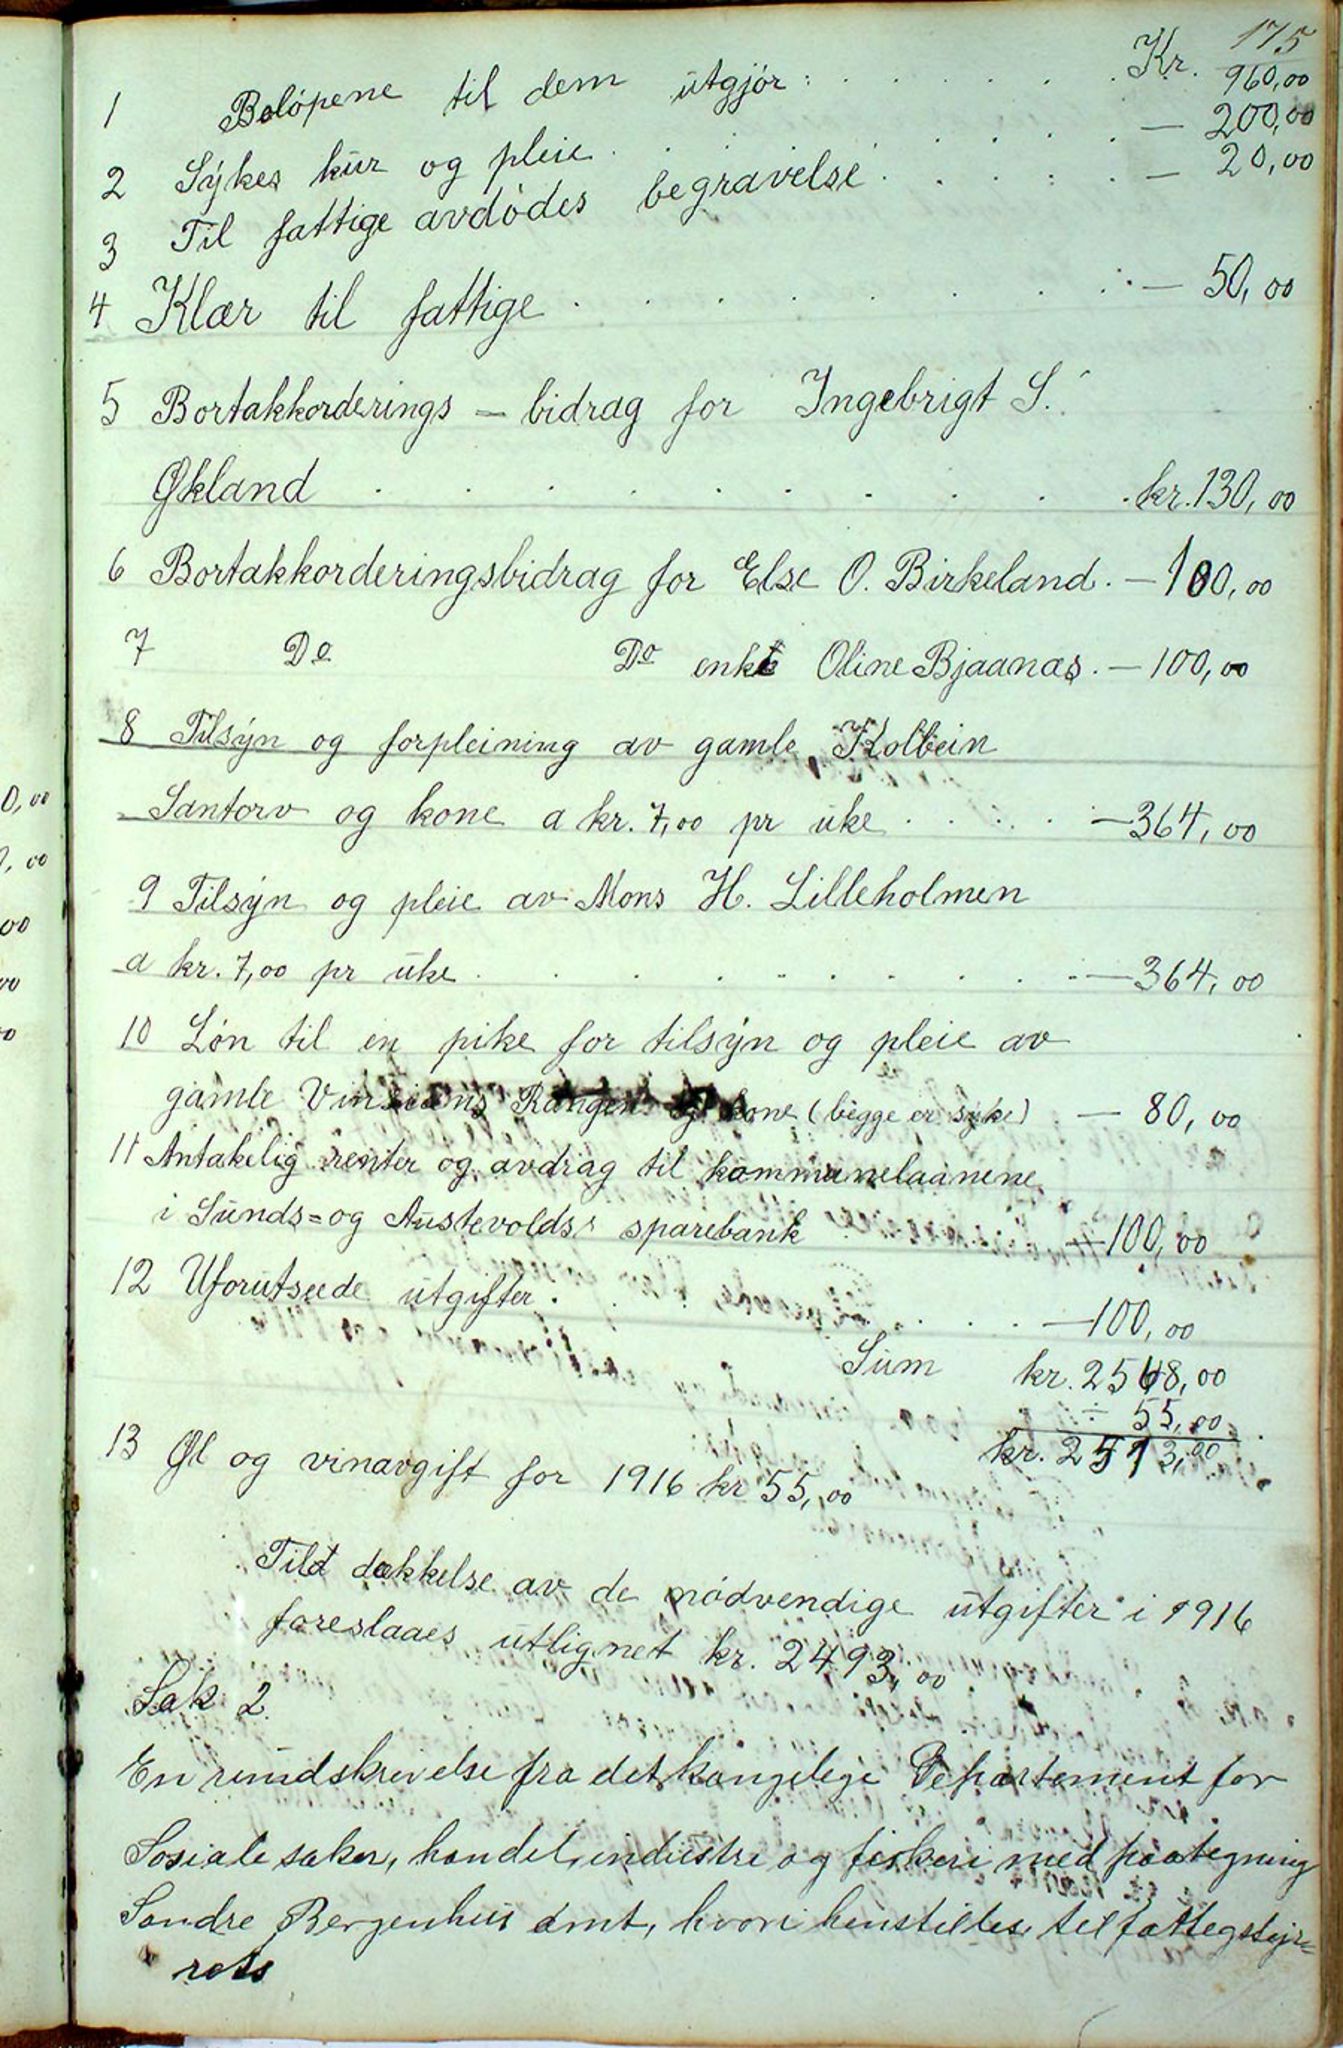 175
1 Beløpene til dem utgjør: . . . . . . Kr. 960,00
2 Sykes kur og pleie . . . . . . — 200,00
3 Til fattige avdødes begravelse . . . . . — 20,00
4 Klær til fattige . . . . . . . — 50,00
5 Bortakkorderings - bidrag for Ingebrigt S.
Økland . . . . . . . . . . kr. 130,00
6 Bortakkorderingsbidrag for Else O. Birkeland. — 100,00
7 Do Do enke Oline Bjaanæs. — 100,00
8 Tilsyn og forpleining av gamle Kolbein
Santorv og kone a kr. 7,00 pr uke . . . . . — 364,00
9 Tilsyn og pleie av Mons H. Lilleholmen
a kr. 7,00 pr uke . . . . . . . . — 364,00
10 Løn til en pike for tilsyn og pleie av
gamle Rangen og kone (begge er syke) — 80,00
11 Antakelig renter og avdrag til kommunelaanene
i Sunds= og Austevolds sparebank — 100,00
12 Uforutseede utgifter . . . . . . . — 100,00
Sum kr. 2568,00
÷ 55,00
kr. 2513,00
13 Øl og vinavgift for 1916 kr 55,00
Til dækkelse av de nødvendige utgifter i 1916
foreslaaes utlignet kr. 2493,00
Sak 2.
En rundskrivelse fra det kongelige Departement for
Sosiale saker, handel, industri og fiskeri med paategning
Søndre Bergenhus amt, hvori henstilles til fattigstyr=
rets